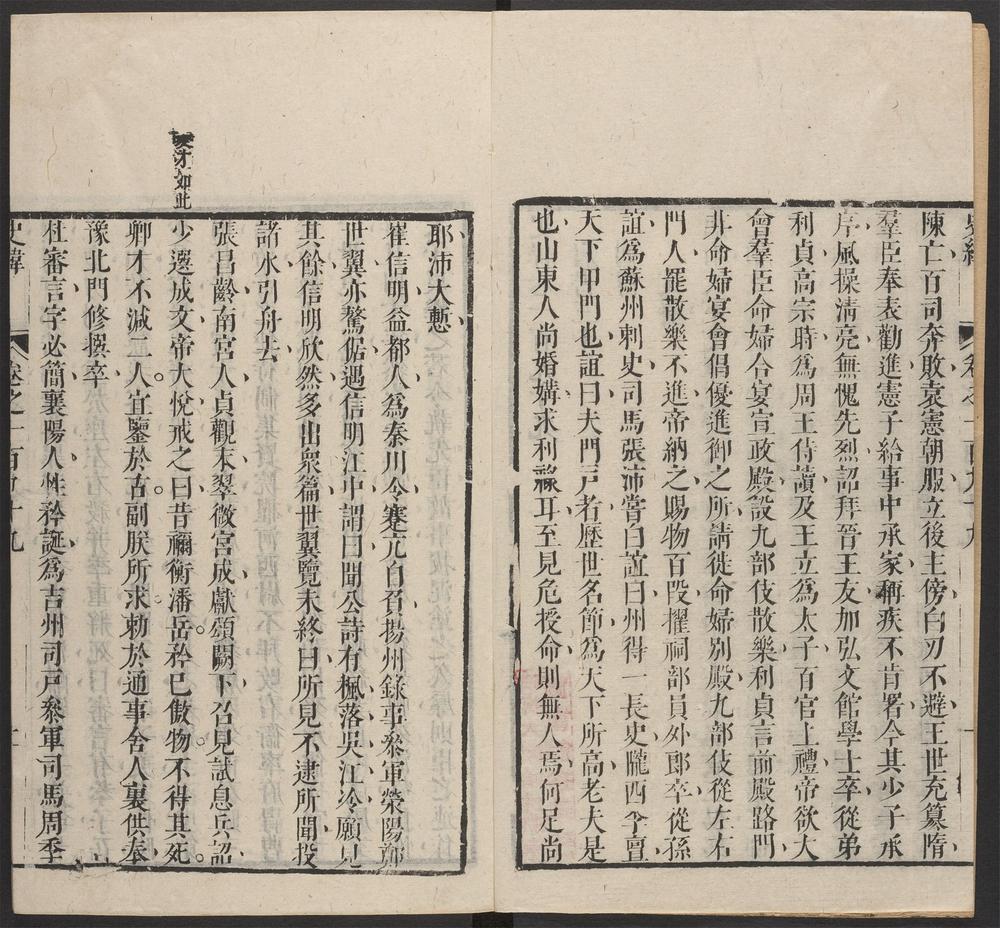 陳亡百司奔敗袁憲朝服立後主傍白刃不避王世充篡隋
羣臣奉表勸進憲子給事中承家稱疾不肯署今其少子承
序風操淸亮無愧先烈詔拜晉王友加弘文館學士卒從弟
利貞高宗時爲周王侍讀及王立爲太子百官上禮帝欲大
會羣臣命婦合宴宣政殿設九部伎散樂利貞言前殿路門
非命婦宴會倡優進御之所請徙命婦別殿九部伎從左右
門入罷散樂不進帝納之賜物百段擢祠部員外郎卒從孫
誼爲蘇州刺史司馬張沛嘗白誼曰州得一長史隴西李亶
天下甲門也誼曰夫門戸者歷世名節爲天下所高老夫是
也山東人尚婚媾求利祿耳至見危授命則無人焉何足尚
耶沛大慙
崔信明益都人爲秦川令蹇亢自負揚州錄事參軍滎陽鄭
世翼亦驁倨遇信明江中謂曰聞公詩有楓落吳江冷願見
其餘信明欣然多出衆篇世翼覽未終曰所見不逮所聞投
諸水引舟去
張昌齡南宮人貞觀末翠微宮成獻頌闕下召見試息兵詔
少選成文帝大悅戒之曰昔禰衡潘岳矜已傲物不得其死
卿才不減二人宜鑒於古副朕所求勅於通事舍人裏供奉
豫北門修撰卒
杜審言字必簡襄陽人性矜誕爲吉州司戸參軍司馬周季
才如此
史緯
卷之一百四十九